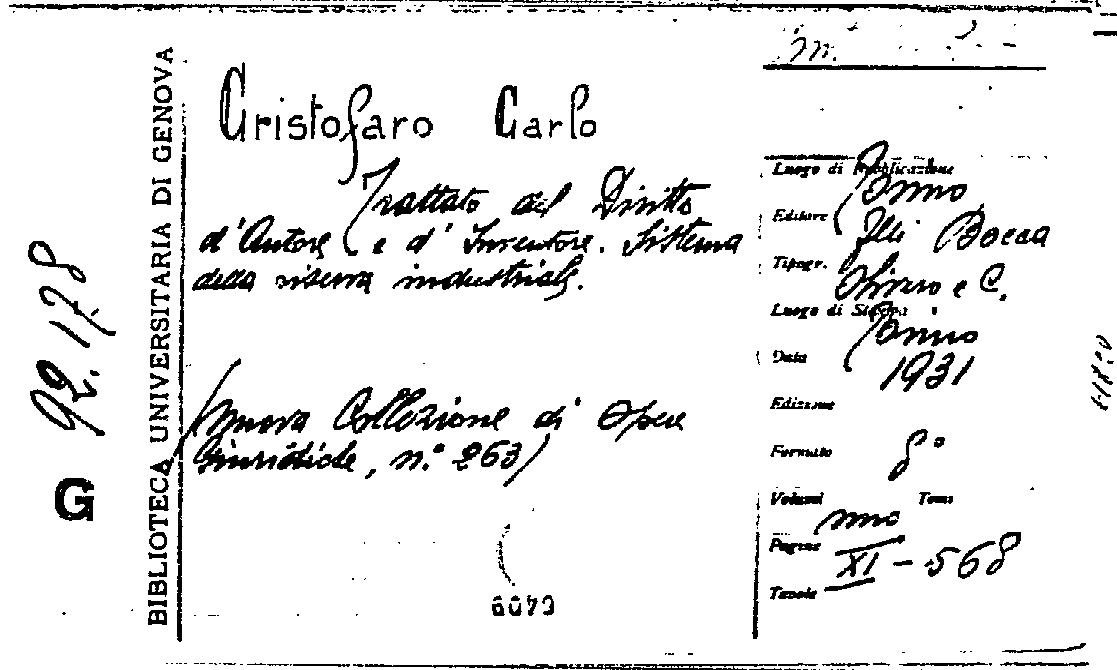 BIBLIOTECA UNIVERSITARIA DI GENOVA
92. 17. 8
G
Cristofaro Carlo
Trattato del Diritto
d'Autore e d'Inventore. Sistema
della riserva industriale.
(Nuova Collezione di Opere
Giuridiche, n.° 263)
6079
Luogo di Pubblicazione Torino
Editore Flli Bocca
Tipogr. Olivero e C.
Luogo di Stampa Torino
Data 1931
Edizione
Formato 8°
Volumi uno Tomi
Pagine XI - 568
Tavole